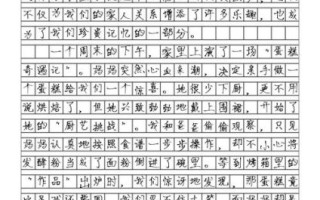 不仅为我们的家人关系增添了许多乐趣，也成
为了我们珍贵记忆的一部分。
一个周末的下午，家里上演了一场“蛋糕
奇遇记”。妈妈突然心血来潮，决定亲手做一
个蛋糕给我们一个惊喜。她很少下厨，更不用
说烘焙了，但她兴致勃勃地戴上围裙，开始了
她的“厨艺挑战”。我和爸爸偷偷观察，只见
妈妈认真地按照食谱一步步操作，却不小心将
发酵粉当成了面粉倒进了碗里。等到烤箱里的
“作品”出炉时，我们惊讶地发现，那蛋糕竟